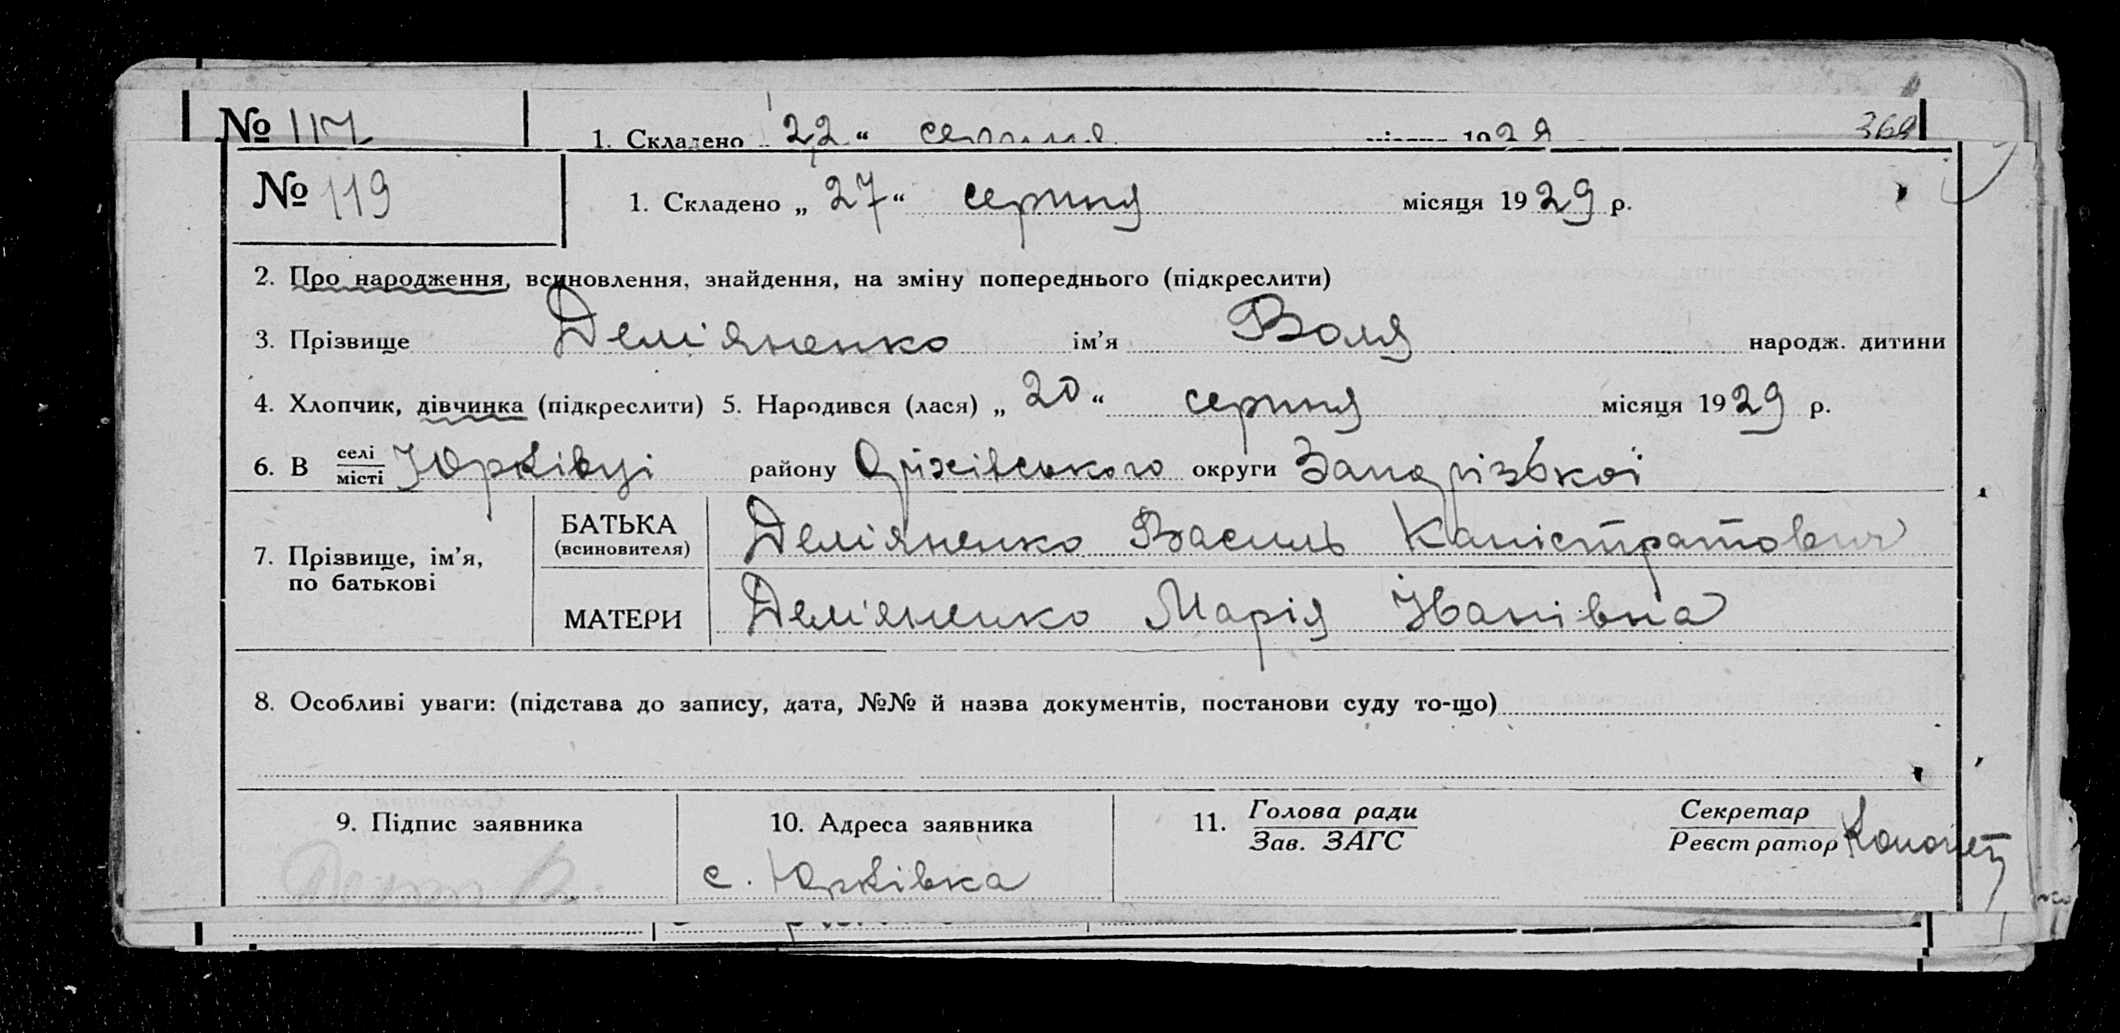 № 117 1. Складено „ 22 “ серпня 1929 369
№ 119 1. Складено „ 27 “ серпня місяця 1929 р.
2. Про народження, всиновлення, знайдення, на зміну попереднього (підкреслити)
3. Прізвище Дем'яненко ім'я Воля народж. дитини
4. Хлопчик, дівчинка (підкреслити) 5. Народився (лася) „ 20 “ серпня місяця 1929 р.
6. В селі/місті Юрківці району Оріхівського округи Запорізької
7. Прізвище, ім'я, по батькові
БАТЬКА (всиновителя) Дем'яненко Василь Каністратович
МАТЕРИ Дем'яненко Марія Іванівна
8. Особливі уваги: (підстава до запису, дата, №№ й назва документів, постанови суду то-що)
9. Підпис заявника 10. Адреса заявника 11. Голова ради/Зав. ЗАГС Секретар/Реєстратор
с. Юрківка